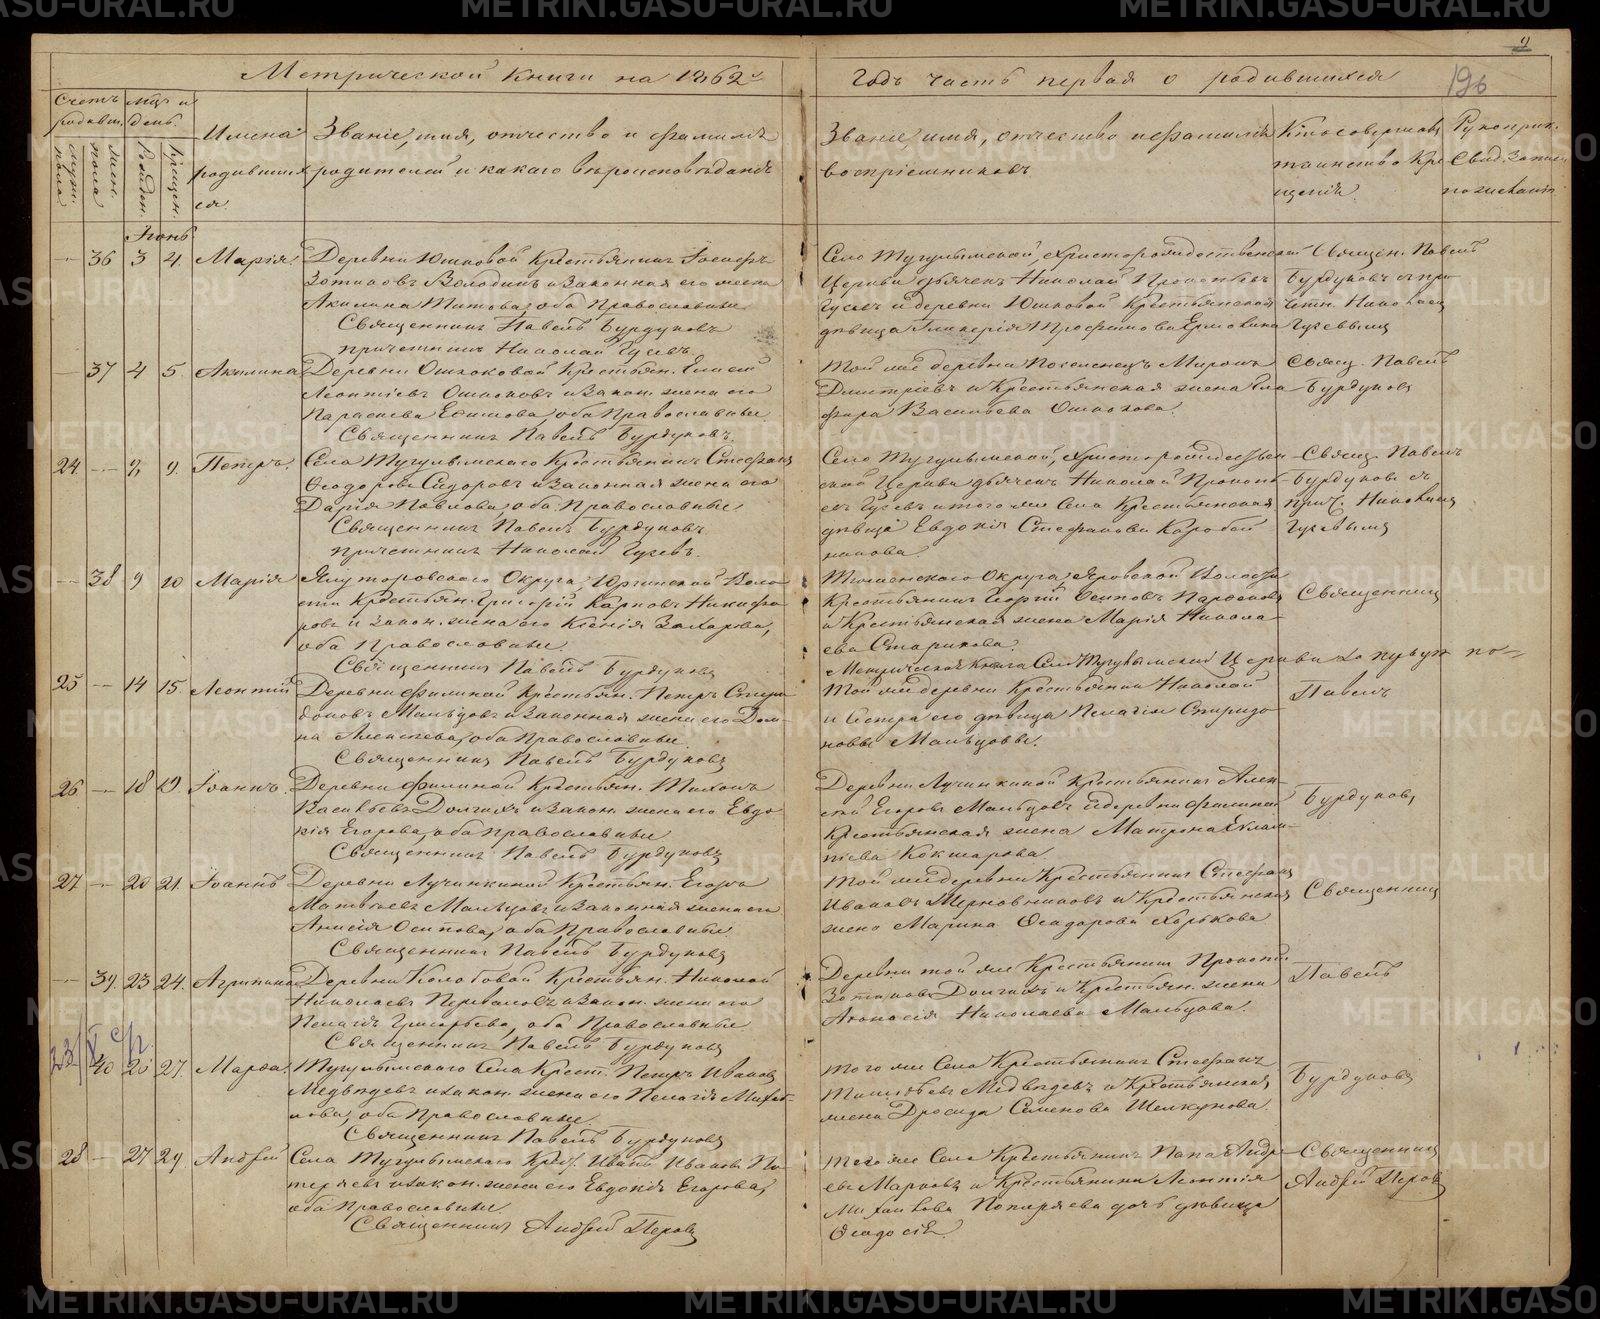 Метрической книги на 1862й
годъ часть первая о родившихся
Счетъ родивш.
Мцъ и день.
мужеск. пола
женск. пола
Рожден.
Крещен.
Имена родившихся.
Званіе, имя, отчество и фамилія
родителей и какаго вѣроисповѣданія
Званіе, имя, отчество и фамилія
воспріемниковъ
Кто совершалъ
таинство Крещенія.
Рукоприк.
Свид. записи
Іюнь
36 3 4. Марія.
Деревни Юшковой Крестьянинъ Іосифъ
Зотиковъ Володинъ и законная его жена
Акилина Титова, оба Православные
Священникъ Павелъ Бурдуковъ
причетникъ Николай Гусевъ.
Село Тугулымской, Христорождественской
Церкви дьячекъ Николай Прокопьевъ
Гусевъ и деревни Юшковой Крестьянская
дѣвица Гликерія Трофимова Ермолина
Священ. Павелъ
Бурдуковъ съ при-
четн. Николаемъ
Гусевымъ
37 4 5. Акилина
Леонтіевъ Ошкоковъ и закон. жена его
Параскева Ефимова, оба Православные
Священникъ Павелъ Бурдуковъ.
Той же деревни Поселенецъ Миронъ
Дмитріевъ и Крестьянская жена Гла-
фира Васильева Ошкокова.
Свящ. Павелъ
Бурдуковъ
24 9. Петръ.
Села Тугулымскаго Крестьянинъ Стефанъ
Ѳеодоровъ Сидоровъ и законная жена его
Дарія Павлова, оба Православные
Священникъ Павелъ Бурдуковъ.
причетникъ Николай Гусевъ.
Село Тугулымской, Христорождествен-
ской Церкви дьячекъ Николай Прокопь-
евъ Гусевъ и того же Села Крестьянская
дѣвица Евдокія Стефанова Коробей-
никова.
Свящ. Павелъ
Бурдуковъ съ
прич. Николаемъ
Гусевымъ
38 9 10 Марія
Ялуторовскаго Округа, Юргинской Воло-
сти Крестьян. Григорій Карповъ Никифо-
ровъ и закон. жена его Ксенія Захарова,
оба Православные.
Священникъ Павелъ Бурдуковъ
Тюменскаго Округа, Яровской Волости
Крестьянинъ Георгій Осиповъ
и Крестьянская жена Марія Никола-
ева Старикова.
Священникъ
Метрическая книга Села Тугулымской Церкви
25 14 15. Леонтій
Деревни Филиной Крестьян. Петръ Спири-
доновъ Мальцовъ и законная жена его Дом-
на Алексѣева, оба Православные.
Священникъ Павелъ Бурдуковъ
Той же деревни Крестьянинъ Николай
и Сестра его дѣвица Пелагія Спиридо-
новы Мальцовы.
Павелъ
26 18 19. Іоаннъ.
Деревни Филиной Крестьян. Тихонъ
Васильевъ Долгихъ и закон. жена его Евдо-
кія Егорова, оба Православные
Священникъ Павелъ Бурдуковъ
Деревни Лучинкиной Крестьянинъ Алек-
сѣй Егоровъ Мальцовъ и деревни Филиной
Крестьянская жена Матрона Евлам-
піева Кокшарова.
Бурдуковъ
27 20 21. Іоаннъ
Деревни Лучинкиной Крестьян. Егоръ
Матвѣевъ Мальцовъ и законная жена его
Анисія Осипова, оба Православные
Священникъ Павелъ Бурдуковъ
Той же деревни Крестьянинъ Стефанъ
Ивановъ и Крестьянская
жена Марина Ѳеодорова Харькова
Священникъ
39. 23 24. Агрипина
Деревни Колобовой Крестьян. Николай
Николаевъ Переваловъ и закон. жена его
Пелагія Григорьева, оба Православные
Священникъ Павелъ Бурдуковъ
Деревни той же Крестьянинъ Прокопій
Зотиковъ Долгихъ и Крестьян. жена
Аѳанасія Николаева Мальцова.
Павелъ
40 26 27. Марѳа.
Тугулымскаго Села Крест. Петръ Ивановъ
Медвѣдевъ и закон. жена его Пелагія Михай-
лова, оба Православные
Священникъ Павелъ Бурдуковъ
Того же Села Крестьянинъ Стефанъ
Тимоѳеевъ Медвѣдевъ и Крестьянская
жена Дросида Семенова Шелкунова.
Бурдуковъ
28 27 29 Андрей
Села Тугулымскаго Крес. Иванъ Ивановъ По-
теряевъ и закон. жена его Евдокія Егорова,
оба Православные
Священникъ Андрей Перовъ
Того же Села Крестьянинъ Андре-
евъ Марковъ и Крестьянина Леонтія
Михайлова дочь дѣвица
Ѳеодосія.
Священникъ
Андрей Перовъ
9
196
METRIKI.GASO-URAL.RU